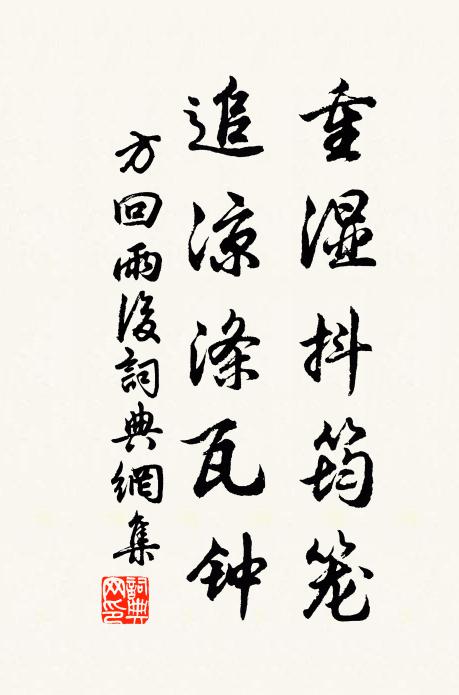 重湿抖筠笼
追凉涤瓦钟
方回雨後詞典網集
詞典网印